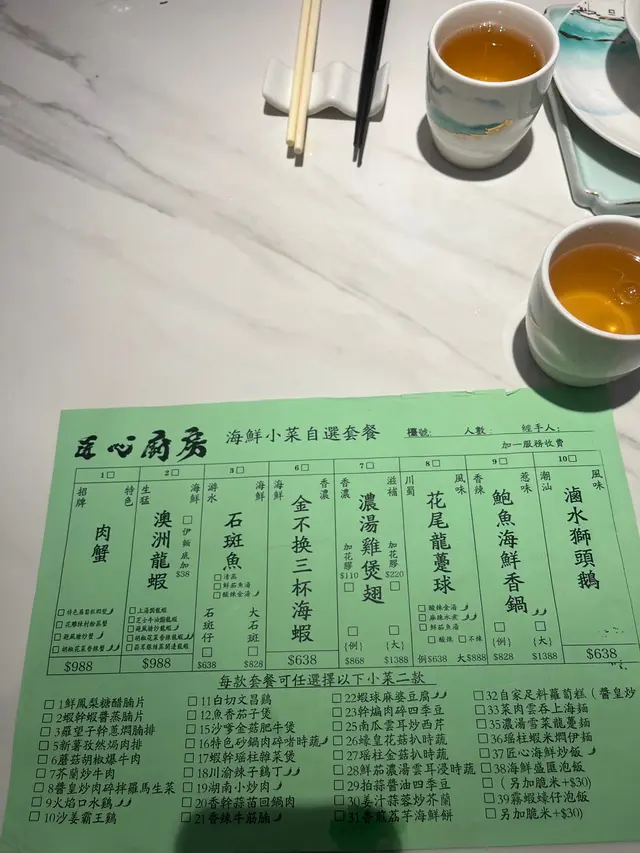 匠心廚房 海鮮小菜自選套餐 檯號: 人數: 經手人:
加一服務收費
1□ 2□ 3□ 6□ 7□ 8□ 9□ 10□
招牌 特色 肉蟹
□花雕辣籽粉蒸蟹
□避風塘炒蟹
$988
生猛 海鮮 澳洲龍蝦
□伊麵底加$38
□上湯焗龍蝦
□芝士牛油焗龍蝦
□避風塘炒龍蝦
$988
游水 海鮮 石斑魚
□清蒸
□鮮茄魚湯
□酸辣金湯
石斑仔□ $638
大石斑□ $828
海鮮 香濃 金不換三杯海蝦
$638
香濃 滋補 濃湯雞煲翅
加花膠$110
加花膠$220
□{例} $868
□{大} $1388
川蜀 風味 花尾龍躉球
□酸辣金湯
□麻辣水煮
□鮮茄魚湯
□酸辣 □不辣
例$638 大$888
香辣 惹味 鮑魚海鮮香鍋
□{例} $828
□{大} $1388
潮汕 風味 滷水獅頭鵝
$638
每款套餐可任選擇以下小菜二款
□1鮮鳳梨糖醋腩片
□2蝦幹蝦醬蒸腩片
□3羅望子幹蔥燜腩排
□5新薯孜然焗肉排
□6蘑菇胡椒爆牛肉
□7芥蘭炒牛肉
□8醬皇炒肉碎拌羅馬生菜
□9火焰口水鷄
□10沙姜霸王鷄
□11白切文昌鷄
□12魚香茄子煲
□15沙爹金菇肥牛煲
□16特色砂鍋肉碎啫時蔬
□17蝦幹瑤柱雜菜煲
□18川渝辣子鷄丁
□19湖南小炒肉
□20香幹蒜苗回鍋肉
□21香辣牛筋腩
□22蝦球麻婆豆腐
□23幹煸肉碎四季豆
□25南瓜雲耳炒西芹
□26蠔皇花菇扒時蔬
□27瑤柱金菇扒時蔬
□28鮮茄濃湯雲耳浸時蔬
□29柚蒜醬油四季豆
□30姜汁蒜蓉炒芥蘭
□31香煎荔芋海鮮餅
□32自家足料蘿蔔糕(醬皇炒
□33菜肉雲吞上海麵
□35濃湯雪菜龍躉麵
□36瑤柱蝦米燜伊麵
□37匠心海鮮炒飯
□38海鮮盛匯泡飯
(另加脆米+$30)
□39霧蝦蠔仔泡飯
另加脆米+$30)